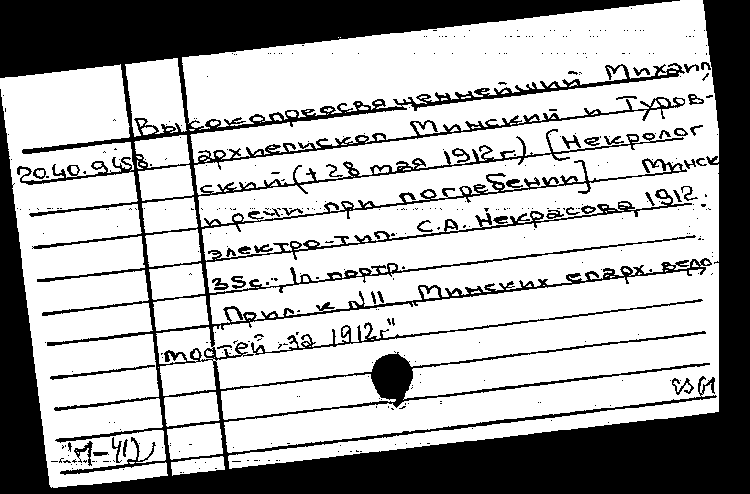 Высокопреосвященнейший Михаил,
20.40.945в. архиепископ Минский и Туров-
ский. († 28 мая 1912 г.). [Некролог
и речи при погребении]. Минск
электро-тип. С.А. Некрасова, 1912.
35с.; 1л. портр.
„Прил. к N11 „Минских епарх. ведо
мостей за 1912г."
(М-41)